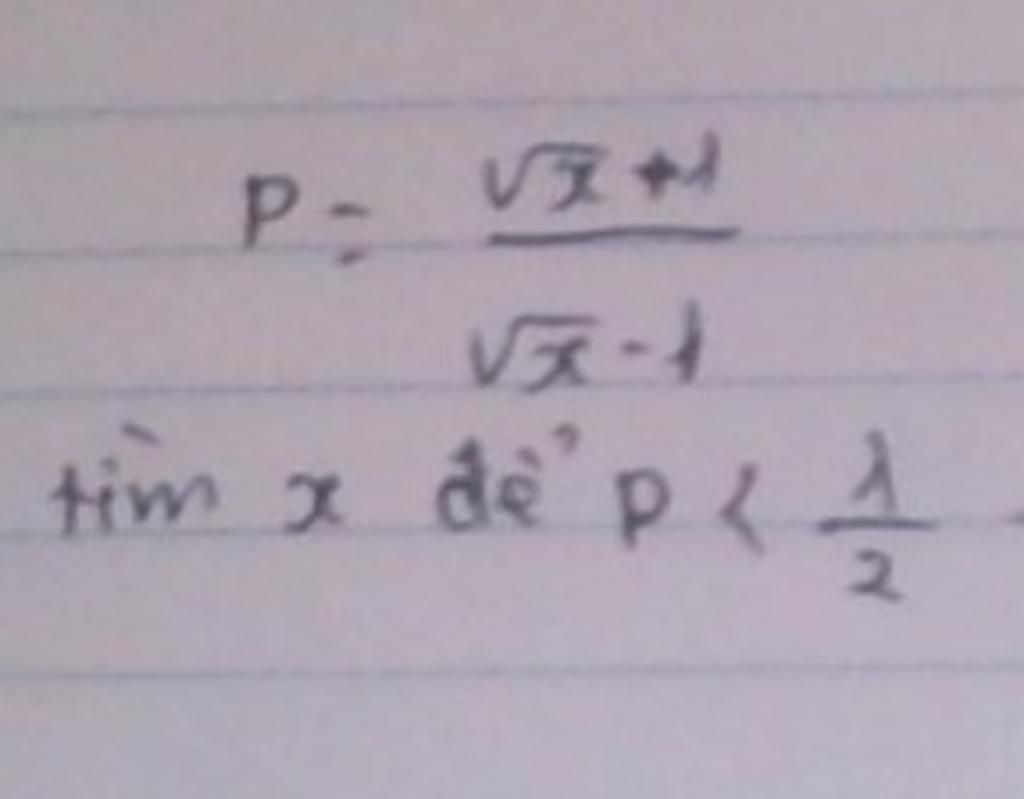 P = \frac{\sqrt{x}+1}{\sqrt{x}-1}
tìm x để P < \frac{1}{2}